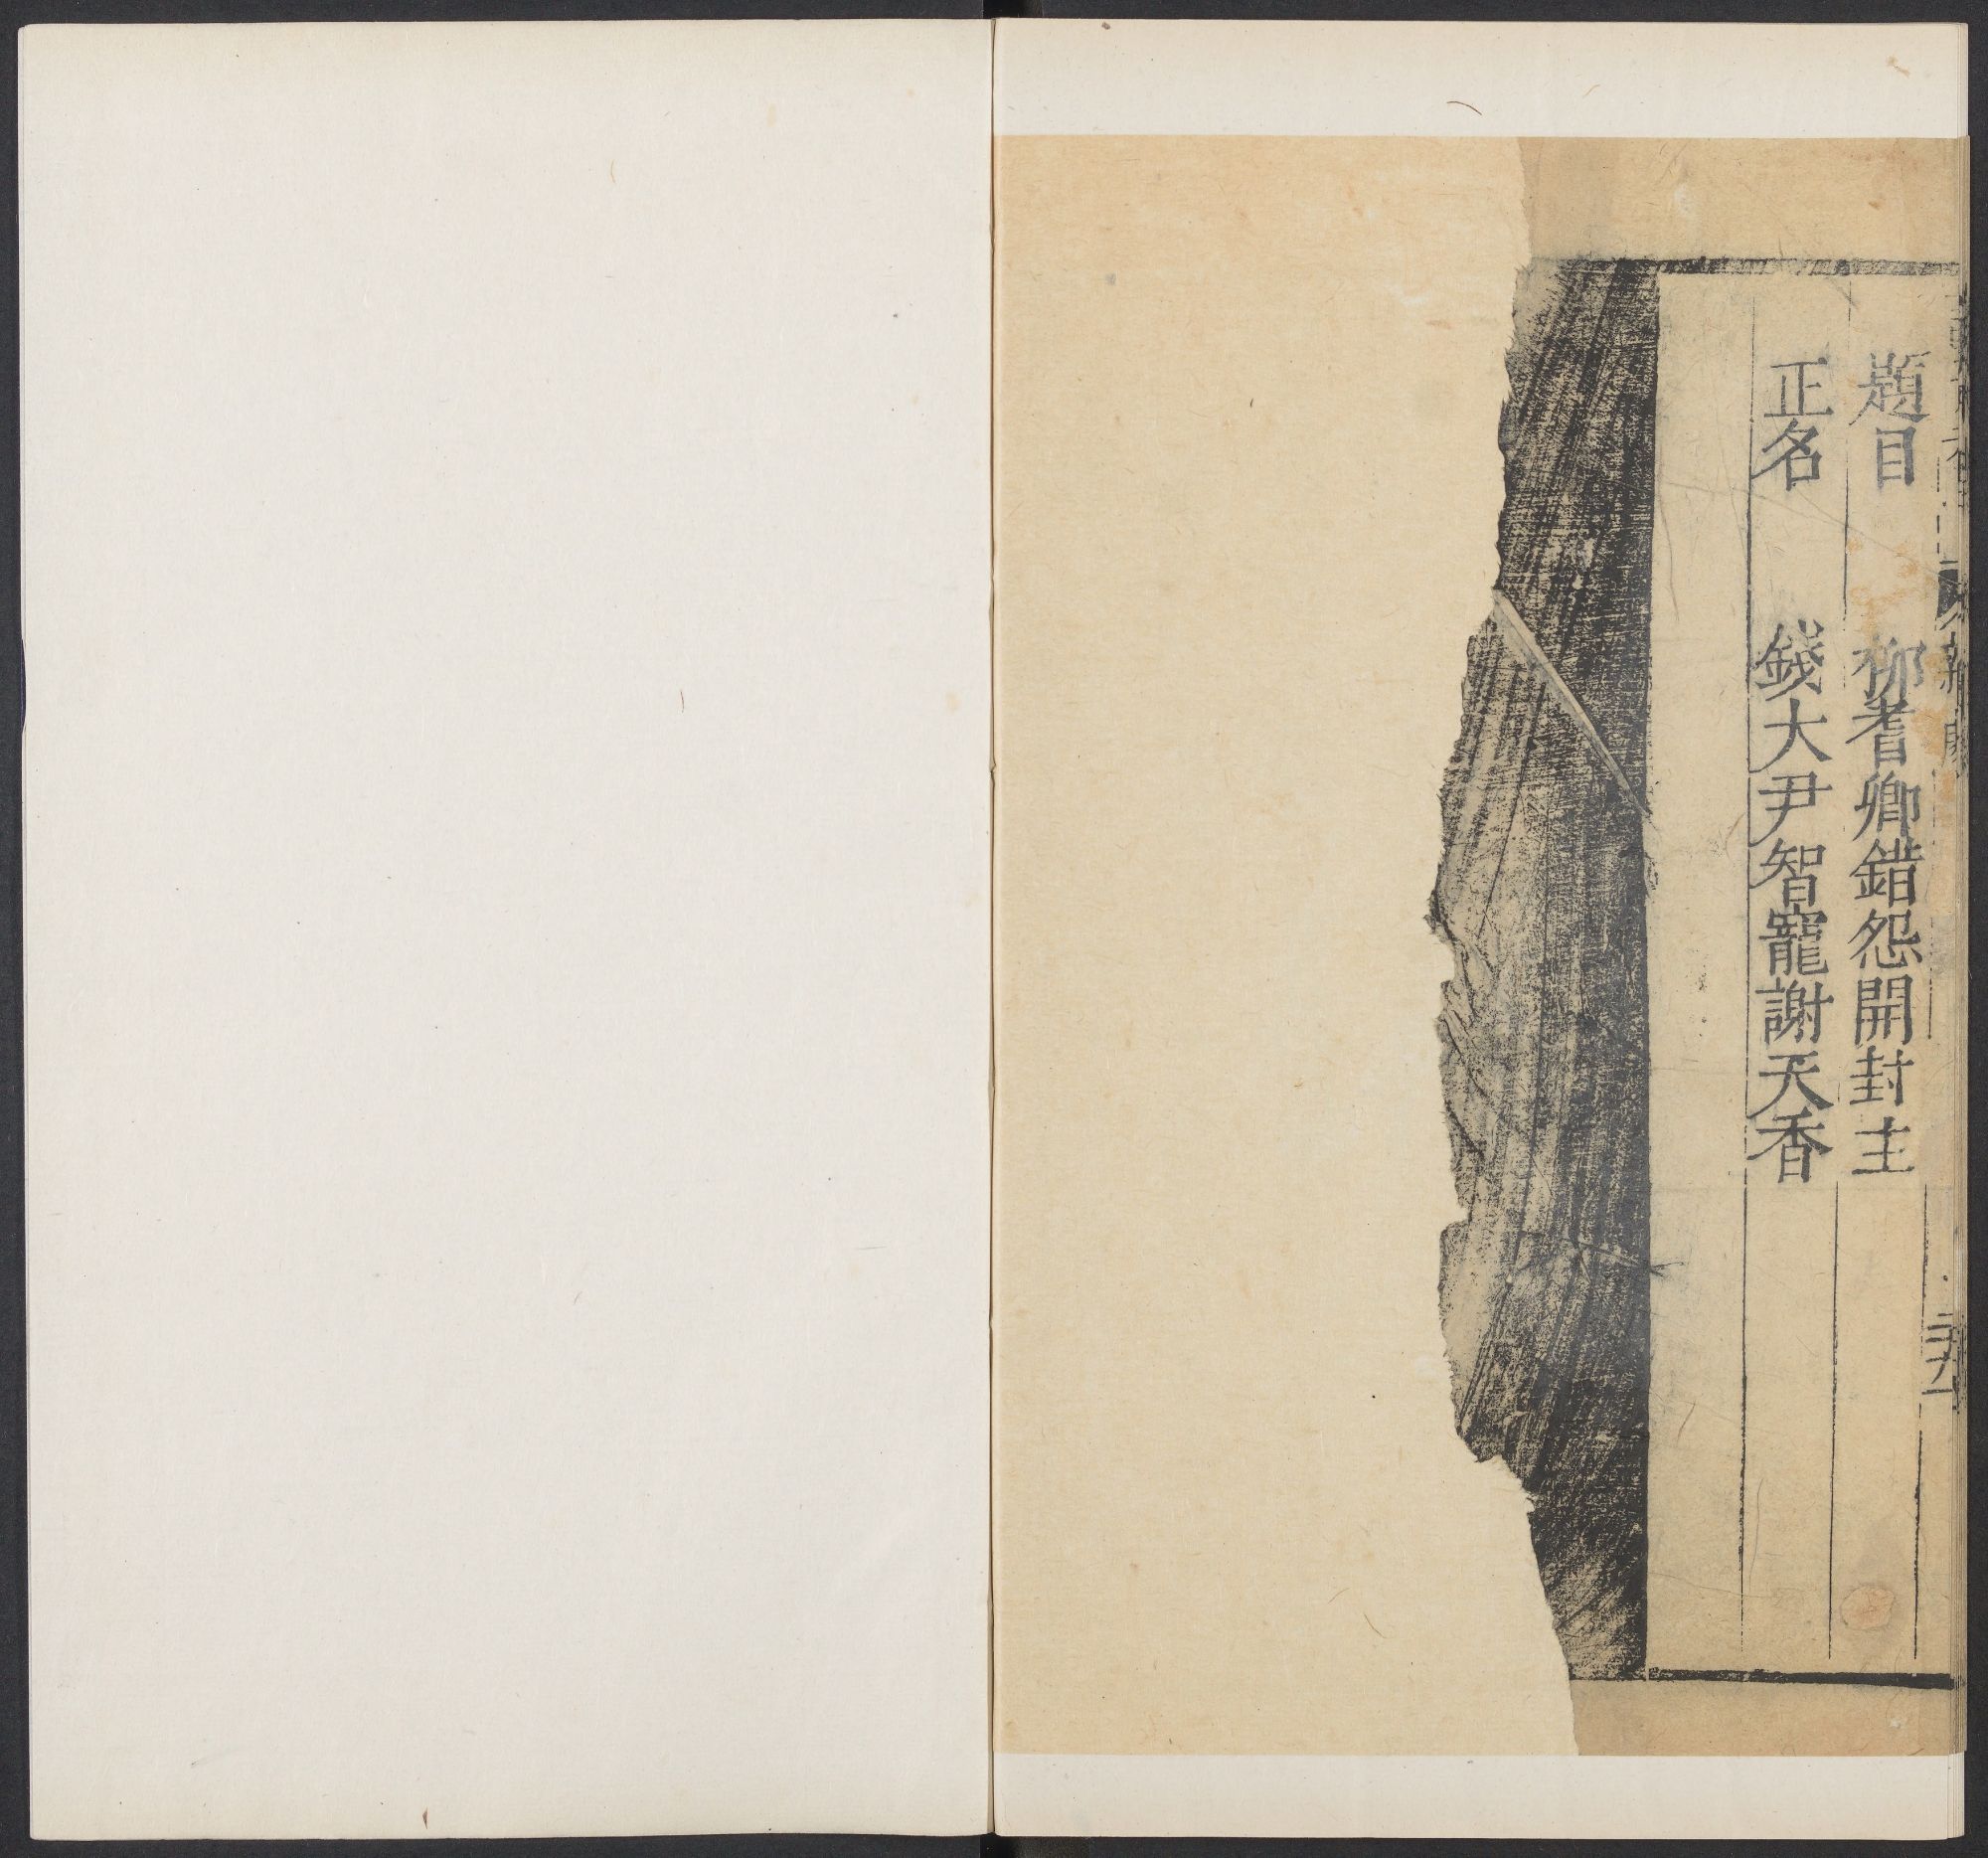 題目　柳耆卿錯怨開封主
正名　錢大尹智寵謝天香